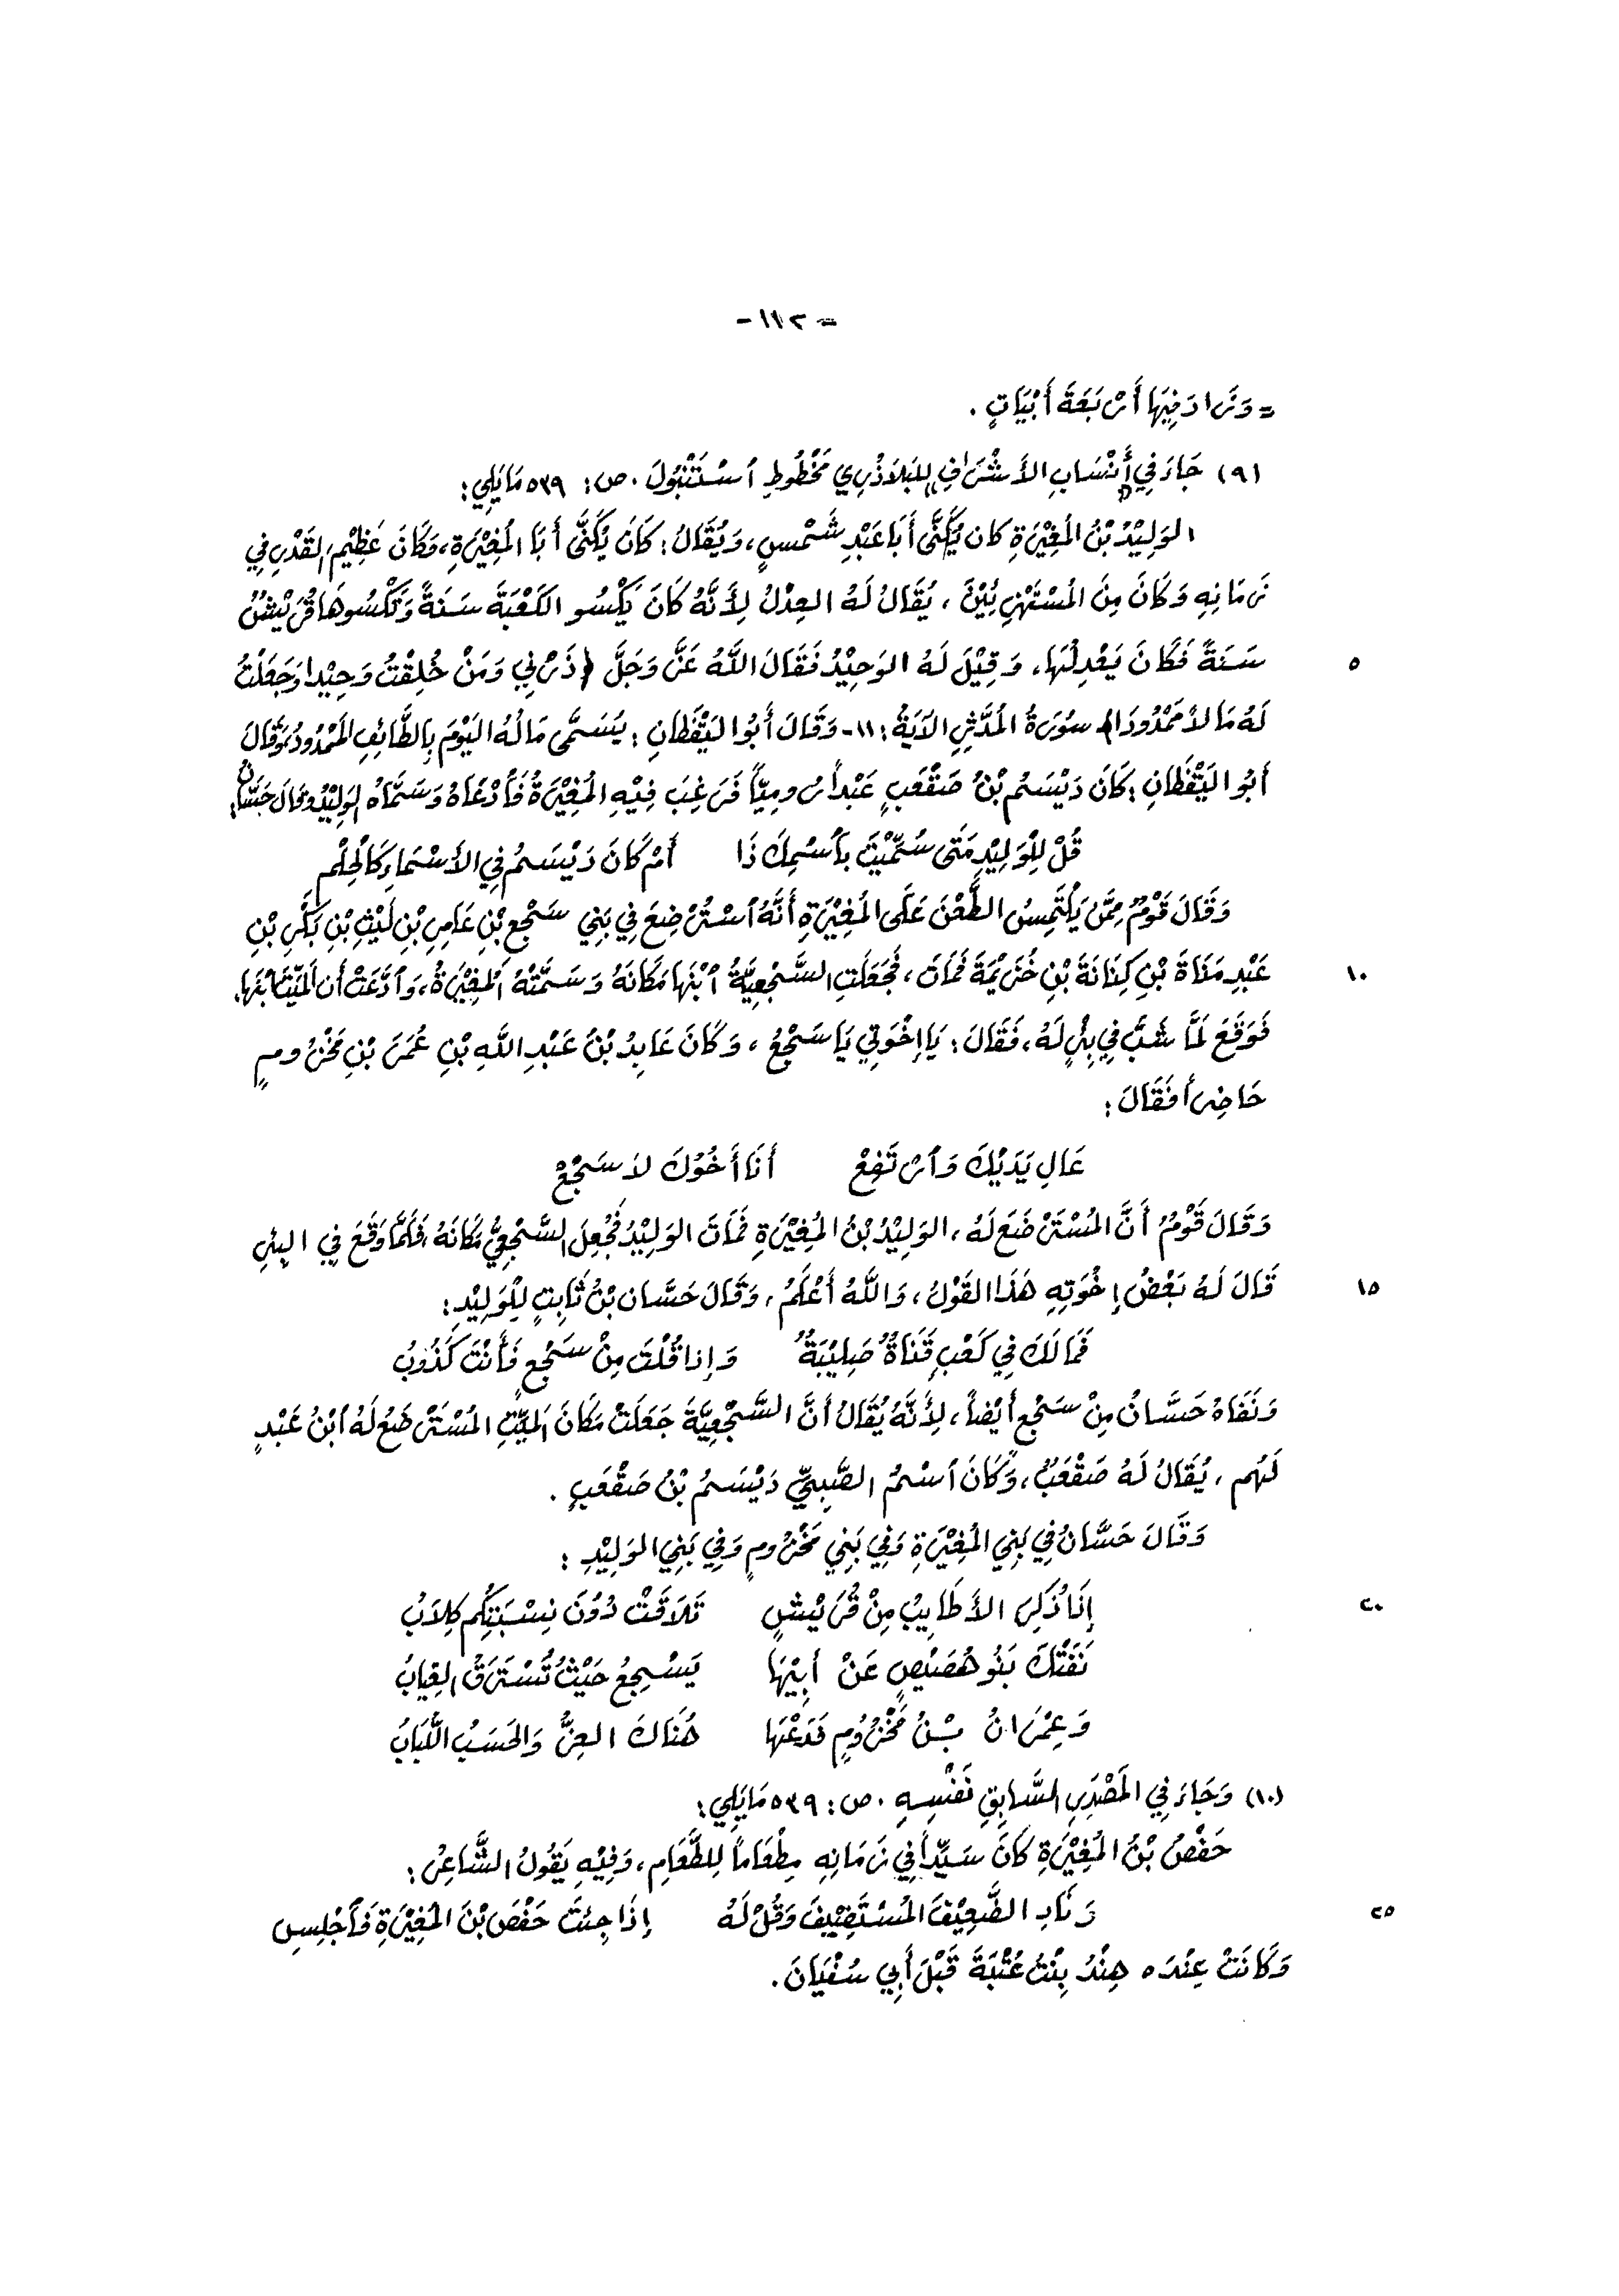 - ١١٢ -
= وَزَادَ فِيهَا أَرْبَعَةَ أَبْيَاتٍ .
(٩) جَاءَ فِي أَنْسَابِ الأَشْرَافِ لِلبَلَاذُرِي مَخْطُوطِ ٱسْتَنْبُولَ . ص: ٥٣٩ مَايَلِي:
الوَلِيْدُ بْنُ المُغِيْرَةِ كان يُكَنَّى أَبَا عَبْدِ شَمْسٍ، وَيُقَالُ: كَانَ يُكَنَّى أَبَا المُغِيْرَةِ، وَكَانَ عَظِيْمَ القَدْرِ فِي
زَمَانِهِ وَكَانَ مِنَ المُسْتَهْزِئِيْنَ ، يُقَالُ لَهُ العِدْلُ لِأَنَّهُ كَانَ يَكْسُو الكَعْبَةَ سَنَةً وَتَكْسُوهَا قُرَيْشٌ
٥ سَنَةً فَكَانَ يَعْدِلُهَا، وَقِيْلَ لَهُ الوَحِيْدُ فَقَالَ اللَّهُ عَزَّ وَجَلَّ ﴿ذَرْنِي وَمَنْ خَلَقْتُ وَحِيْدا وَجَعَلْتُ
لَهُ مَالاً مَمْدُودَا﴾ سُوْرَةُ المُدَّثِّرِ الآيَةُ: ١١- وَقَالَ أَبُو اليَقْظَانِ : يُسَمَّى مَالُهُ اليَوْمَ بِالطَّائِفِ المَمْدُودُ، وَقَالَ
أَبُو اليَقْظَانِ : كَانَ دَيْسَمُ بْنُ صَقْعَبٍ عَبْداً رومِيّاً فَرَغِبَ فِيْهِ المُغِيْرَةُ فَٱدَّعَاهُ وَسَمَّاهُ الوَلِيْدُ وقَالَ حَسَّانُ:
قُلْ لِلْوَلِيْدِ مَتَى سُمِّيْتَ بِٱسْمِكَ ذَا أَمْ كَانَ دَيْسَمُ فِي الأَسْمَاءِ كَالحُلْمِ
وَقَالَ قَوْمٌ مِمَّنْ يَلْتَمِسُ الطَّعْنَ عَلَى المُغِيْرَةِ أَنَّهُ ٱسْتُرْضِعَ فِي بَنِي سَجْعِ بْنِ عَامِرِ بْنِ لَيْثِ بْنِ بَكْرِ بْنِ
١٠ عَبْدِ مَنَاةَ بْنِ كِنَانَةَ بْنِ خُزَيْمَةَ فَمَاتَ ، فَجَعَلَتِ السَّجْعِيَّةُ ٱبْنَهَا مَكَانَهُ وَسَمَّتْهُ المُغِيْرَةُ، وَٱدَّعَتْ أن المَيِّتَ ٱبْنُهَا.
فَوَقَعَ لَمَّا شَبَّ فِي بِئْرٍ لَهُ، فَقَالَ: يَا إِخْوَتِي يَا سَجْعُ ، وَكَانَ عَابِدُ بْنُ عَبْدِ اللَّهِ بْنِ عُمَرَ بْنِ مَخْزُومٍ
حَاضِراً فَقَالَ:
عَالِ يَدَيْكَ وَٱرْتَفِعْ أَنَا أَخُوْكَ لاَ سَجْعْ
وَقَالَ قَوْمٌ أَنَّ المُسْتَرْضَعَ لَهُ، الوَلِيْدُ بْنُ المُغِيْرَةِ فَمَاتَ الوَلِيْدُ فَجُعِلَ السَّجْعِيُّ مَكَانَهُ، فَلَمَّا وَقَعَ فِي البِئْرِ
١٥ قَالَ لَهُ بَعْضُ إِخْوَتِهِ هَذَا القَوْلَ، وَاللَّهُ أَعْلَمُ، وَقَالَ حَسَّان بْنُ ثَابِتٍ لِلْوَلِيْدِ:
فَمَا لَكَ فِي كَعْبٍ قَنَاةٌ صَلِيْبَةٌ وَإِذا قُلْتَ مِنْ سَجْعٍ فَأَنْتَ كَذُوْبُ
وَنَفَاهُ حَسَّانُ مِنْ سَجْعٍ أَيْضاً، لِأَنَّهُ يُقَالُ أَنَّ السَّجْعِيَّةَ جَعَلَتْ مَكَانَ المَيِّتِ المُسْتَرْضَعُ لَهُ ٱبْنُ عَبْدٍ
لَهُم ، يُقَالُ لَهُ صَقْعَبٌ، وَكَانَ ٱسْمُ الصَّبِيِّ دَيْسَمُ بْنُ صَقْعَبٍ .
وَقَالَ حَسَّانُ فِي بَنِي المُغِيْرَةِ وَفِي بَنِي مَخْزُومٍ وَفِي بَنِي الوَلِيْدِ :
٢٠ إِذَا ذُكِرَ الأَطَايِبُ مِنْ قُرَيْشٍ تَلَاقَتْ دُوْنَ نِسْبَتِكُم كِلَابُ
نَفَتْكَ بَنُو هُصَيْصٍ عَنْ أَبِيْهَا بِسَجْعٍ حَيْثُ تُسْتَرَقُ العِيابُ
وَعِمْرَانُ بْنُ مَخْزُومٍ فَدَعْهَا هُنَاكَ العِزُّ وَالحَسَبُ اللُّبَابُ
(١٠) وَجَاءَ فِي المَصْدَرِ السَّابِقِ نَفْسِهِ . ص: ٥٣٩ مَايَلِي:
حَفْصُ بْنُ المُغِيْرَةِ كَانَ سَيِّداً فِي زَمَانِهِ مِطْعَاماً لِلطَّعَامِ، وَفِيْهِ يَقُولُ الشَّاعِرُ:
٢٥ وَنَادِ الضَّعِيْفَ المُسْتَضِيْفَ وَقُلْ لَهُ إِذَا جِئْتَ حَفْصَ بْنَ المُغِيْرَةِ فَٱجْلِسِ
وَكَانَتْ عِنْدَه هِنْدُ بِنْتُ عُتْبَةَ قَبْلَ أَبِي سُفْيَانَ .